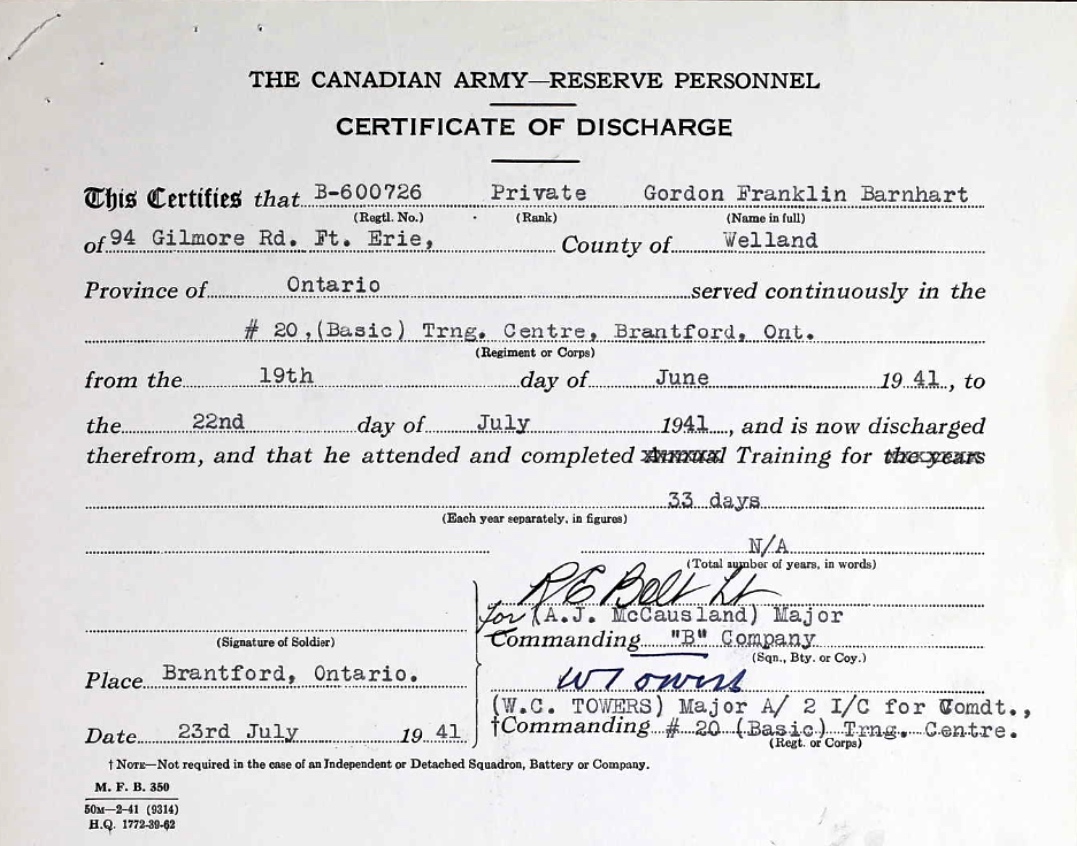 THE CANADIAN ARMY—RESERVE PERSONNEL
CERTIFICATE OF DISCHARGE
This Certifies that B-600726 Private Gordon Franklin Barnhart
(Regtl. No.) (Rank) (Name in full)
of 94 Gilmore Rd. Ft. Erie, County of Welland
Province of Ontario served continuously in the
# 20,(Basic) Trng. Centre, Brantford, Ont.
(Regiment or Corps)
from the 19th day of June 19 41, to
the 22nd day of July 1941, and is now discharged
therefrom, and that he attended and completed Annual Training for the years
33 days
(Each year separately, in figures)
N/A
(Total number of years, in words)
R E Bolt Lt
for (A.J. McCausland) Major
(Signature of Soldier) Commanding "B" Company
(Sqn., Bty. or Coy.)
Place Brantford, Ontario. W Towers
(W.C. TOWERS) Major A/ 2 I/C for Comdt.,
Date 23rd July 19 41 †Commanding # 20 (Basic) Trng. Centre.
(Regt. or Corps)
† NOTE—Not required in the case of an Independent or Detached Squadron, Battery or Company.
M. F. B. 350
50M—2-41 (9314)
H.Q. 1772-39-62